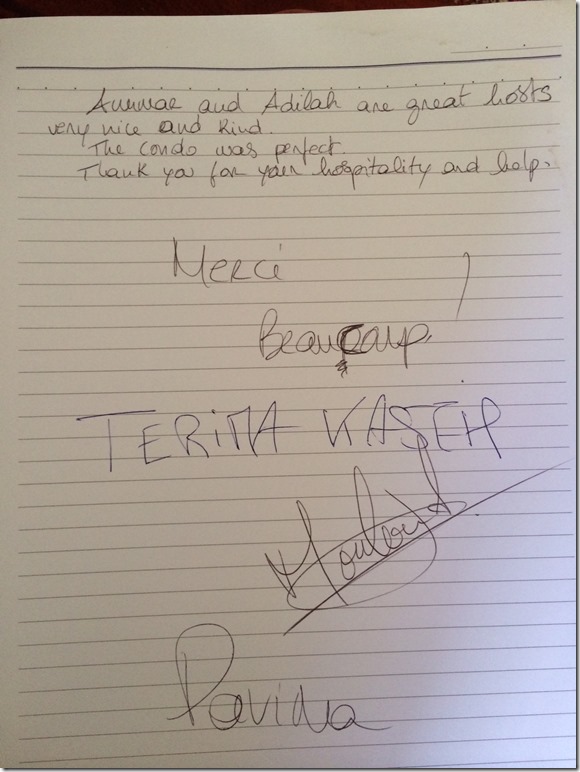 Ammar and Adilah are great hosts
very nice and kind.
The condo was perfect.
Thank you for your hospitality and help.
Merci
Beaucoup !
TERIMA KASEH
Pavidna